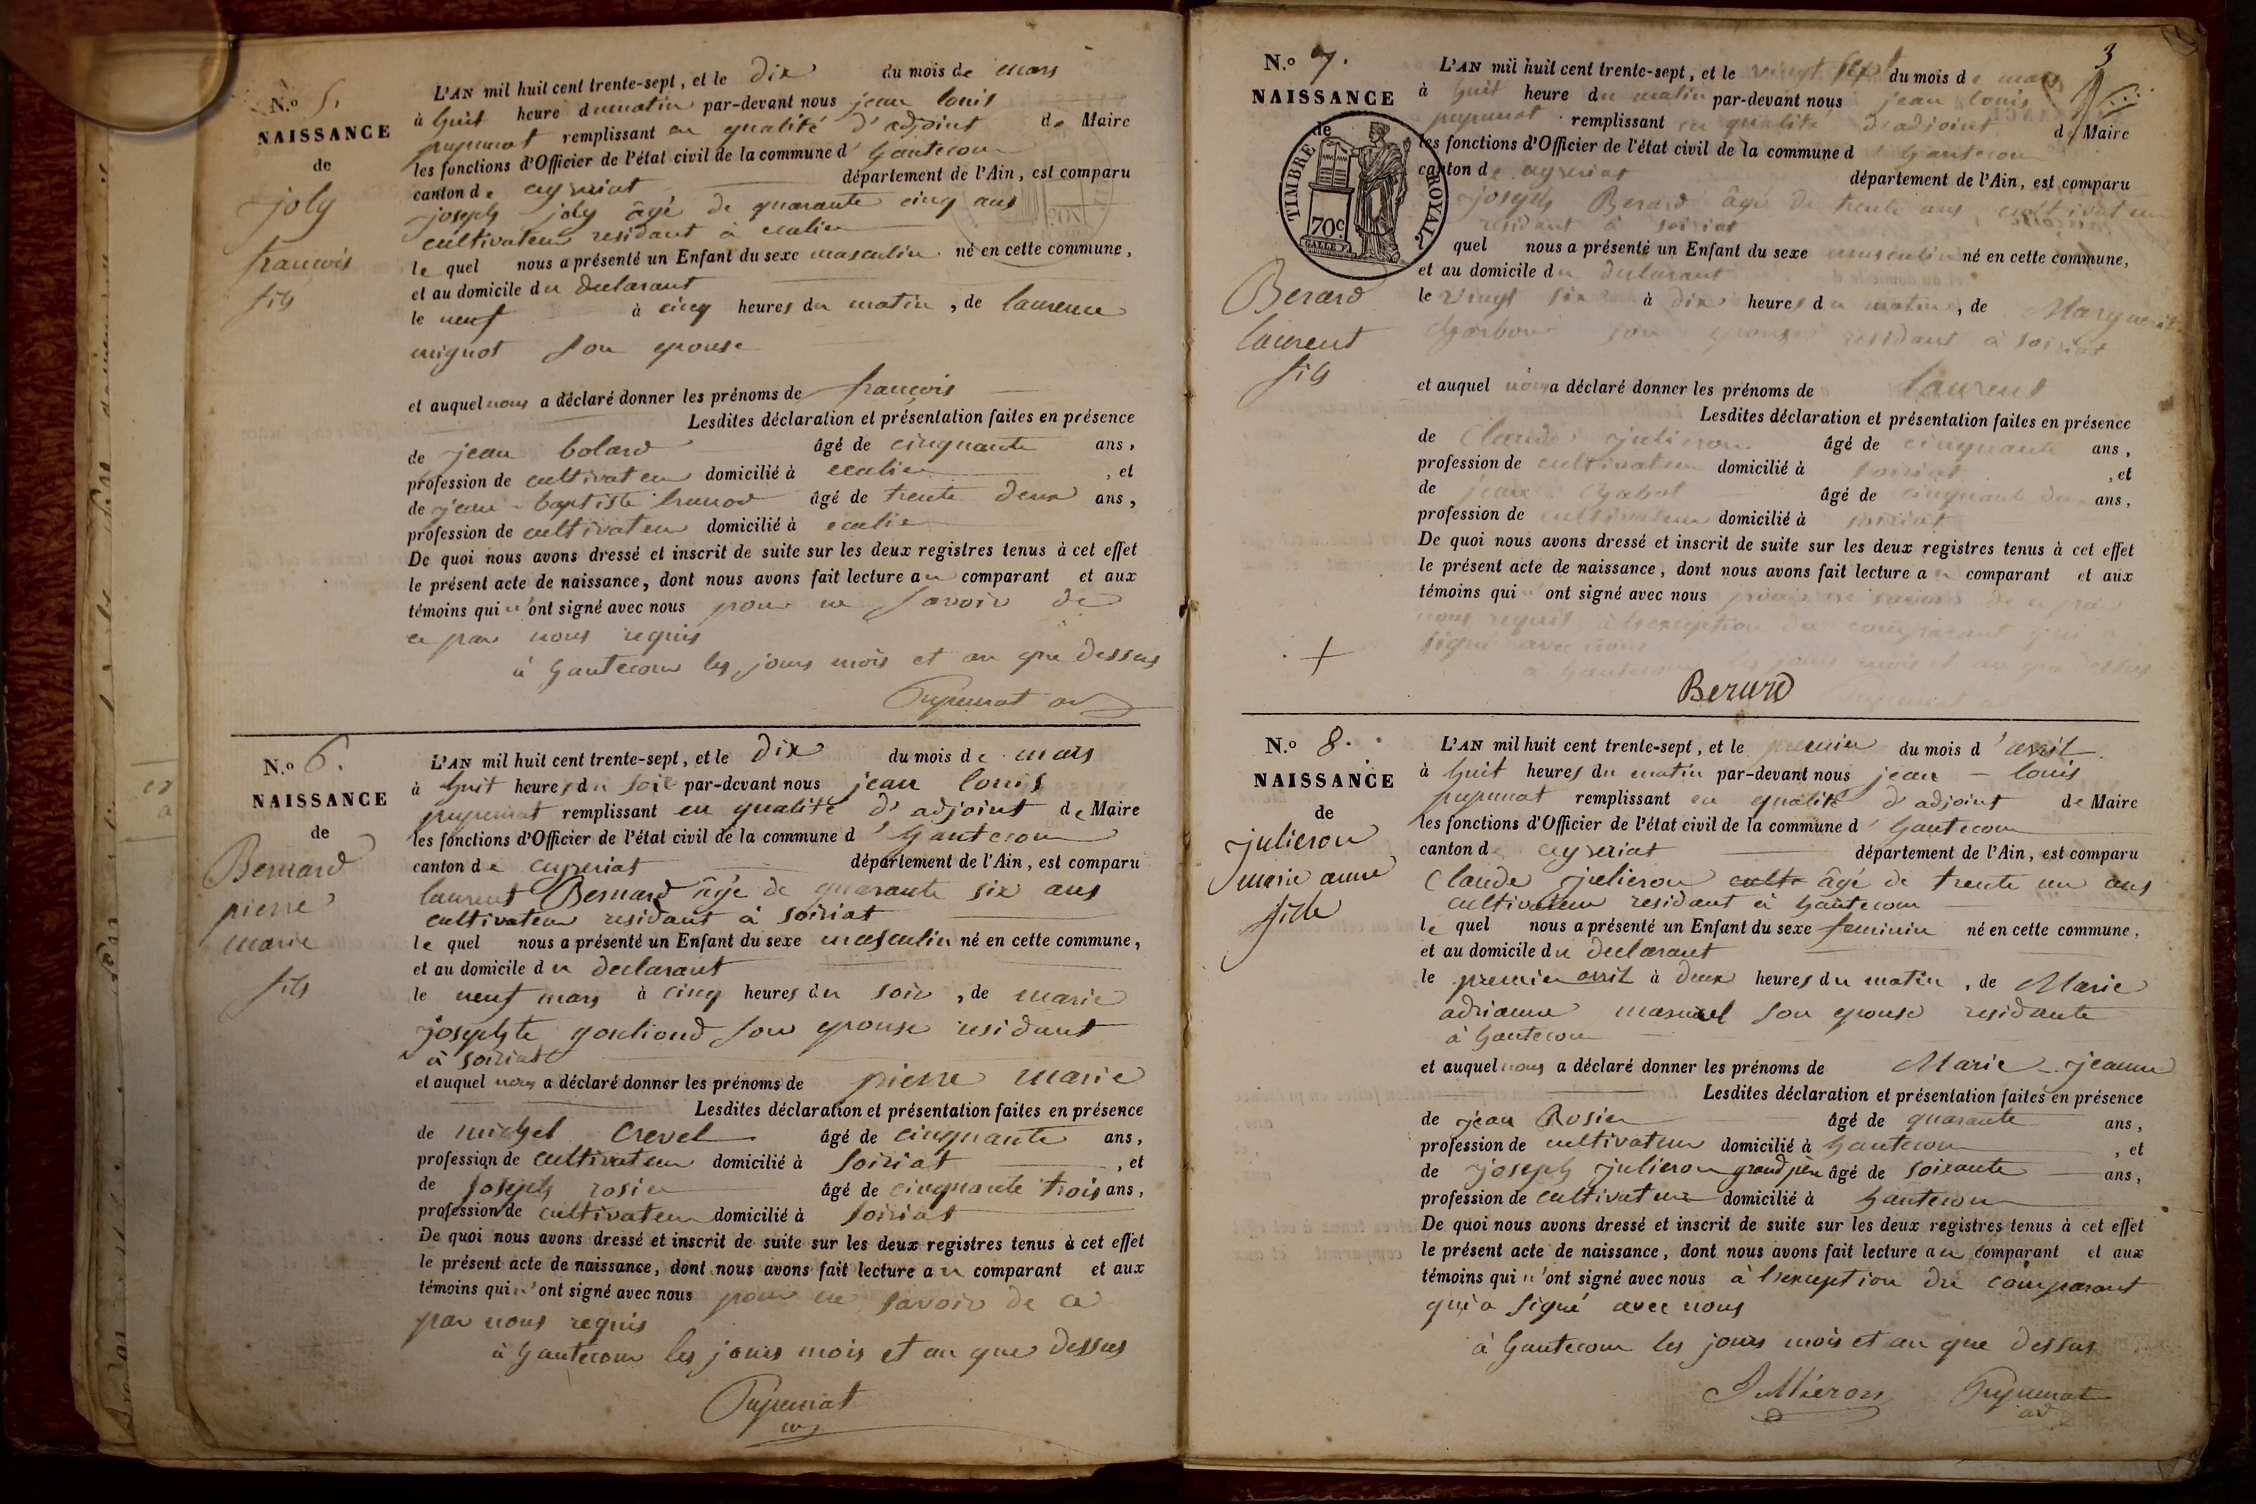 N.o 5.
NAISSANCE
de
joly
francois
fils
L'AN mil huit cent trente-sept, et le dix du mois de mars
à huit heure du matin par-devant nous jean louis
pupunat remplissant en qualité d'adjoint de Maire
les fonctions d'Officier de l'état civil de la commune d'hautecour
canton de ceyzeriat département de l'Ain, est comparu
joseph joly âgé de quarante cinq ans
cultivateur residant à
le quel nous a présenté un Enfant du sexe masculin né en cette commune,
et au domicile du declarant
le neuf à cinq heures du matin, de laurence
mignot son epouse
et auquel nous a déclaré donner les prénoms de francois
Lesdites déclaration et présentation faites en présence
de jean bolard âgé de cinquante ans,
profession de cultivateur domicilié à , et
de jean-baptiste âgé de trente deux ans,
profession de cultivateur domicilié à
De quoi nous avons dressé et inscrit de suite sur les deux registres tenus à cet effet
le présent acte de naissance, dont nous avons fait lecture au comparant et aux
témoins qui n'ont signé avec nous pour ne savoir de
ce par nous requis
à hautecour les jours mois et an que dessus
N.o 6.
NAISSANCE
de
Bernard
pierre
marie
fils
L'AN mil huit cent trente-sept, et le dix du mois de mars
à huit heures du soir par-devant nous jean louis
pupunat remplissant en qualité d'adjoint de Maire
les fonctions d'Officier de l'état civil de la commune d'hautecour
canton de ceyzeriat département de l'Ain, est comparu
laurent Bernard âgé de quarante six ans
cultivateur residant à soiriat
le quel nous a présenté un Enfant du sexe masculin né en cette commune,
et au domicile du declarant
le neuf mars à cinq heures du soir, de marie
josephte son epouse residant
à soiriat
et auquel nous a déclaré donner les prénoms de pierre marie
Lesdites déclaration et présentation faites en présence
de michel crevel âgé de cinquante ans,
profession de cultivateur domicilié à soiriat, et
de joseph rosier âgé de cinquante trois ans,
profession de cultivateur domicilié à soiriat
De quoi nous avons dressé et inscrit de suite sur les deux registres tenus à cet effet
le présent acte de naissance, dont nous avons fait lecture au comparant et aux
témoins qui n'ont signé avec nous pour ne savoir de ce
par nous requis
à hautecour les jours mois et an que dessus
3
N.o 7.
NAISSANCE
de
TIMBRE ROYAL
70c.
Berard
laurent
fils
L'AN mil huit cent trente-sept, et le vingt sept du mois de mars
à huit heure du matin par-devant nous jean louis
pupunat remplissant en qualité d'adjoint de Maire
les fonctions d'Officier de l'état civil de la commune d'hautecour
canton de ceyzeriat département de l'Ain, est comparu
joseph Berard âgé de trente ans cultivateur
residant à soiriat
quel nous a présenté un Enfant du sexe masculin né en cette commune,
et au domicile du declarant
le vingt six à dix heures du matin, de Marguerite
son epouse residant à soiriat
et auquel nous a déclaré donner les prénoms de laurent
Lesdites déclaration et présentation faites en présence
de Claude julieron âgé de cinquante ans,
profession de cultivateur domicilié à soiriat, et
de jean âgé de cinquante deux ans,
profession de cultivateur domicilié à soiriat
De quoi nous avons dressé et inscrit de suite sur les deux registres tenus à cet effet
le présent acte de naissance, dont nous avons fait lecture au comparant et aux
témoins qui n'ont signé avec nous pour ne savoir de ce par
nous requis à l'exception du comparant qui a
signé avec nous
à hautecour les jours mois et an que dessus
Berard
N.o 8.
NAISSANCE
de
julieron
marie anne
fille
L'AN mil huit cent trente-sept, et le premier du mois d'avril
à huit heures du matin par-devant nous jean-louis
pupunat remplissant en qualité d'adjoint de Maire
les fonctions d'Officier de l'état civil de la commune d'hautecour
canton de ceyzeriat département de l'Ain, est comparu
Claude julieron âgé de trente un ans
cultivateur residant à hautecour
le quel nous a présenté un Enfant du sexe feminin né en cette commune,
et au domicile du declarant
le premier avril à deux heures du matin, de Marie
adrianne son epouse residante
à hautecour
et auquel nous a déclaré donner les prénoms de Marie-jeanne
Lesdites déclaration et présentation faites en présence
de jean Rosier âgé de quarante ans,
profession de cultivateur domicilié à hautecour, et
de joseph julieron grand père âgé de soixante ans,
profession de cultivateur domicilié à hautecour
De quoi nous avons dressé et inscrit de suite sur les deux registres tenus à cet effet
le présent acte de naissance, dont nous avons fait lecture au comparant et aux
témoins qui n'ont signé avec nous à l'exception du comparant
qui a signé avec nous
à hautecour les jours mois et an que dessus
Jullieron